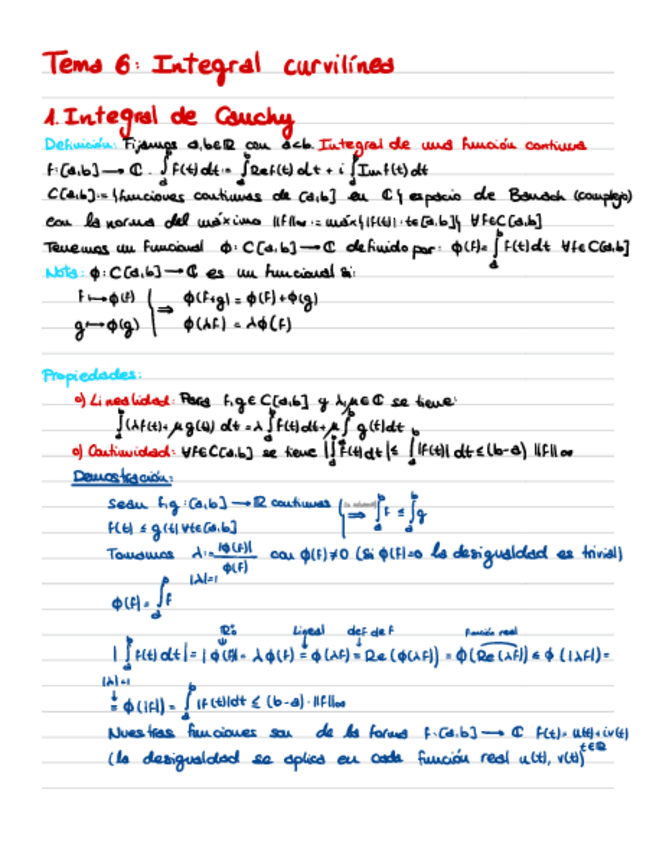 Tema 6: Integral curvilínea
1. Integral de Cauchy
Definición: Fijamos a,b∈ℝ con a<b. Integral de una función continua
f:[a,b]→ℂ. ∫_a^b f(t)dt = ∫_a^b Re f(t) dt + i ∫_a^b Im f(t) dt
C[a,b]:={funciones continuas de [a,b] en ℂ} espacio de Banach (complejo)
con la norma del máximo ||f||∞ := máx{|f(t)|: t∈[a,b]} ∀f∈C[a,b]
Tenemos un funcional ϕ: C[a,b]→ℂ definido por: ϕ(f)= ∫_a^b f(t)dt ∀f∈C[a,b]
Nota: ϕ: C[a,b]→ℂ es un funcional si:
f↦ϕ(f) ⇒ ϕ(f+g) = ϕ(f)+ϕ(g)
g↦ϕ(g) ϕ(λf) = λϕ(f)
Propiedades:
o) Linealidad: Para f,g∈C[a,b] y λ,μ∈ℂ se tiene:
∫_a^b (λf(t)+μg(t)) dt = λ∫_a^b f(t)dt + μ∫_a^b g(t)dt
o) Continuidad: ∀f∈C[a,b] se tiene |∫_a^b f(t)dt| ≤ ∫_a^b |f(t)| dt ≤ (b-a) ||f||∞
Demostración:
Sean f,g:[a,b]→ℝ continuas ⇒ ∫_a^b f ≤ ∫_a^b g
f(t) ≤ g(t) ∀t∈[a,b]
Tomamos λ:= |ϕ(f)|/ϕ(f) con ϕ(f)≠0 (si ϕ(f)=0 la desigualdad es trivial)
|λ|=1
ϕ(f)= ∫_a^b f
Lineal def de f Función real
|∫_a^b f(t)dt| = |ϕ(f)| = λϕ(f) = ϕ(λf) = Re(ϕ(λf)) = ϕ(Re(λf)) ≤ ϕ(|λf|) =
|λ|=1
= ϕ(|f|) = ∫_a^b |f(t)|dt ≤ (b-a)·||f||∞
Nuestras funciones son de la forma f:[a,b]→ℂ f(t)=u(t)+iv(t)
t∈ℝ
(la desigualdad se aplica en cada función real u(t), v(t)